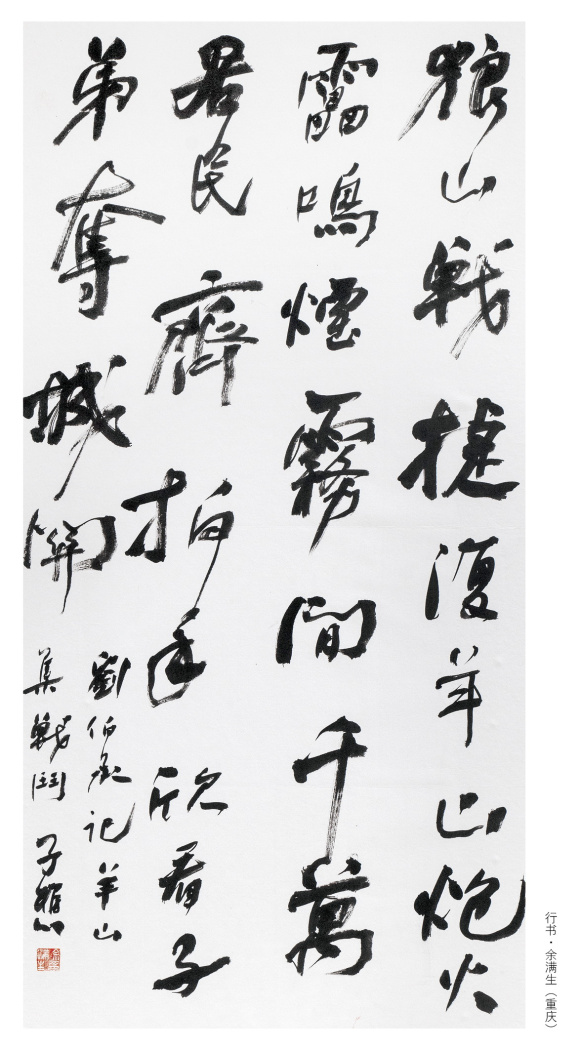 狼山戰捷復羊山炮火
雷鳴煙霧間千萬
居民齊拍手欣看子
弟奪城關
劉伯承記羊山
集戰鬥
行书·余满生（重庆）